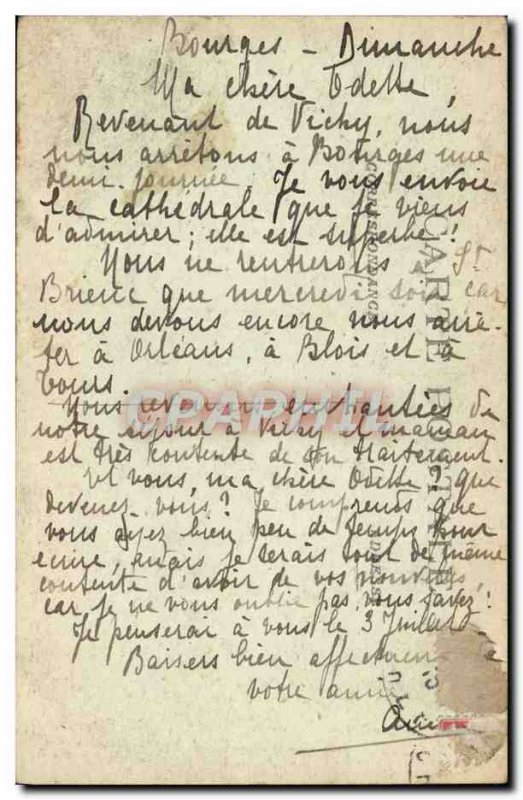 Bourges - Dimanche
Ma chère Odette,
Revenant de Vichy, nous
nous arrêtons à Bourges une
demi-journée. Je vous envoie
la cathédrale que je viens
d'admirer ; elle est superbe !
Nous ne rentrerons à St
Brieuc que mercredi soir car
nous devons encore nous arrê-
ter à Orléans, à Blois et à
Tours.
Nous revenons enchantées de
notre séjour à Vichy et maman
est très contente de son traitement.
Et vous, ma chère Odette ? que
devenez-vous ? Je comprends que
vous ayez bien peu de temps pour
écrire, mais je serais tout de même
contente d'avoir de vos nouvelles,
car je ne vous oublie pas, vous savez !
Je penserai à vous le 3 Juillet
Baisers bien
votre amie
CARTE POSTALE
CORRESPONDANCE
CPAPHIL